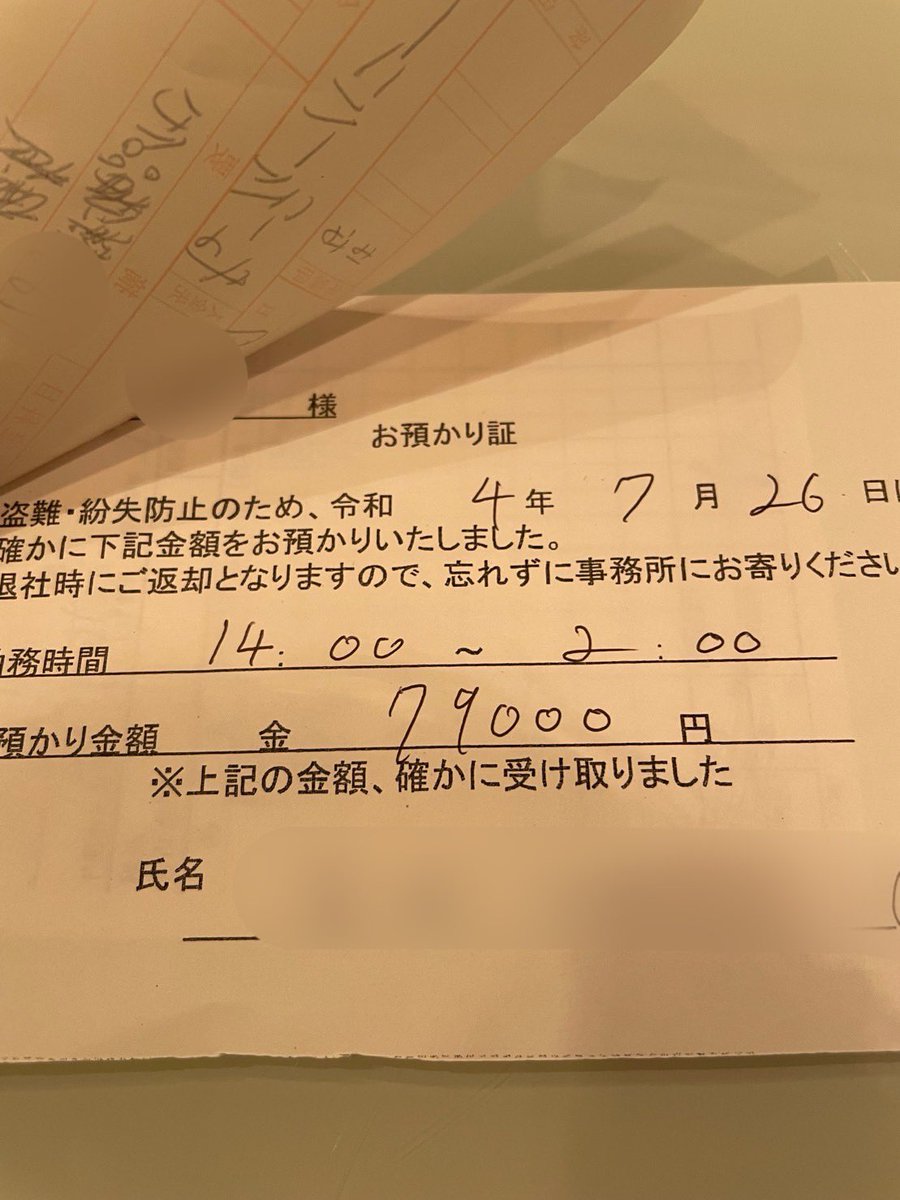 様
お預かり証
盗難・紛失防止のため、令和 4年 7月 26日
確かに下記金額をお預かりいたしました。
退社時にご返却となりますので、忘れずに事務所にお寄りくださ
務時間 14:00 ~ 2:00
預かり金額 金 79000 円
※上記の金額、確かに受け取りました
氏名